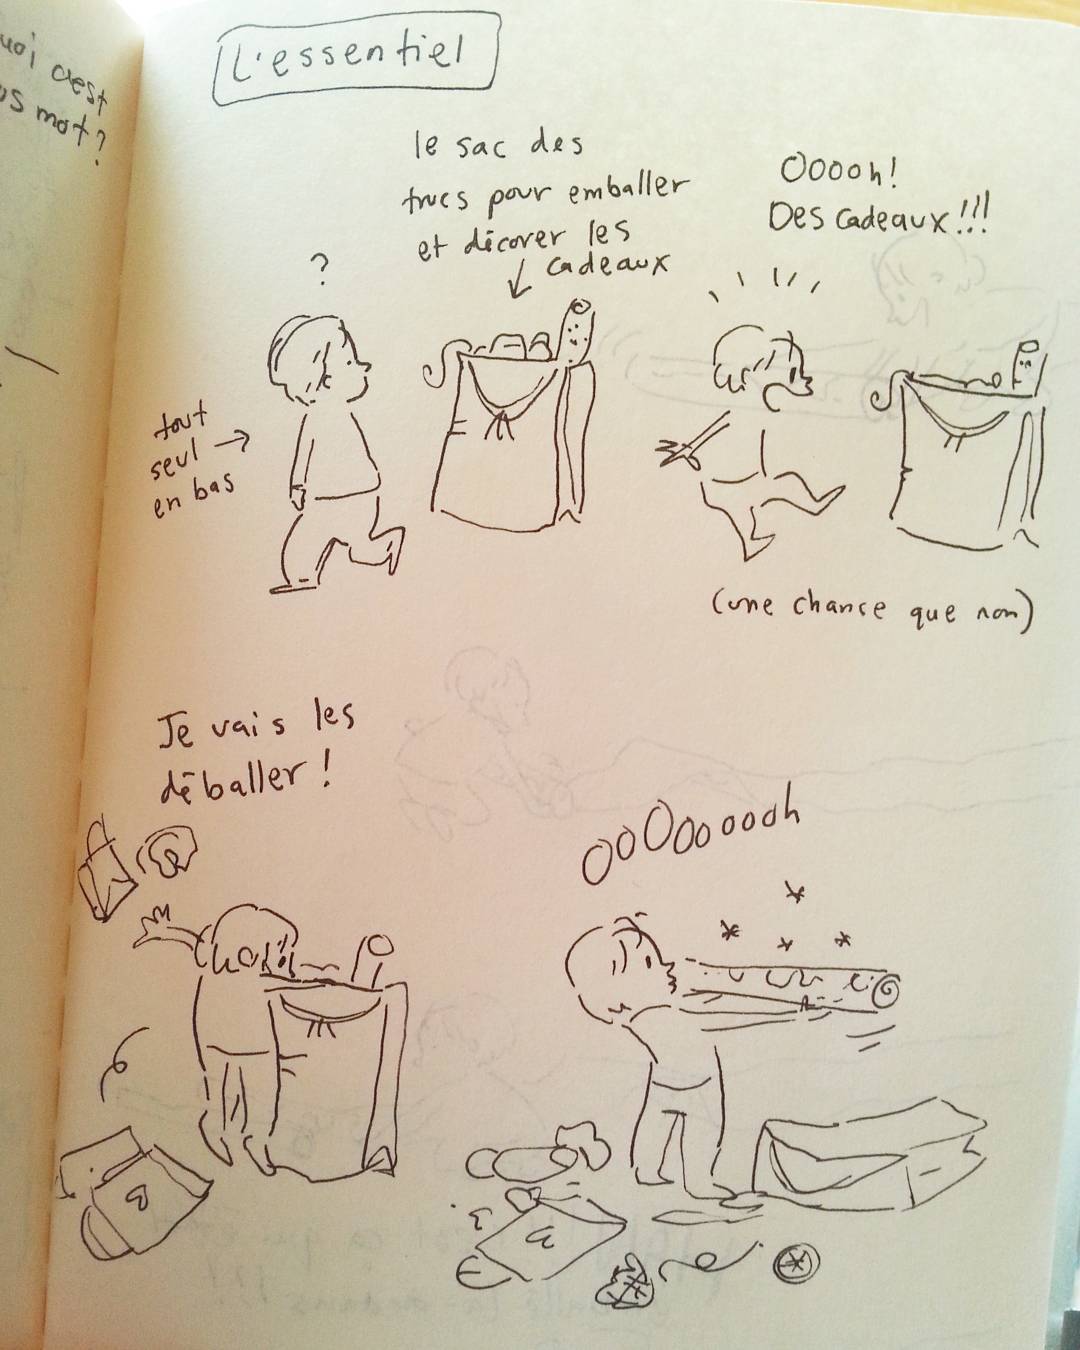 uoi c'est
as mot?
L'essentiel
le sac des
trucs pour emballer
et décorer les
cadeaux
Ooooh!
Des cadeaux!!!
?
tout
seul
en bas
(une chance que non)
Je vais les
déballer!
OoOoooooh